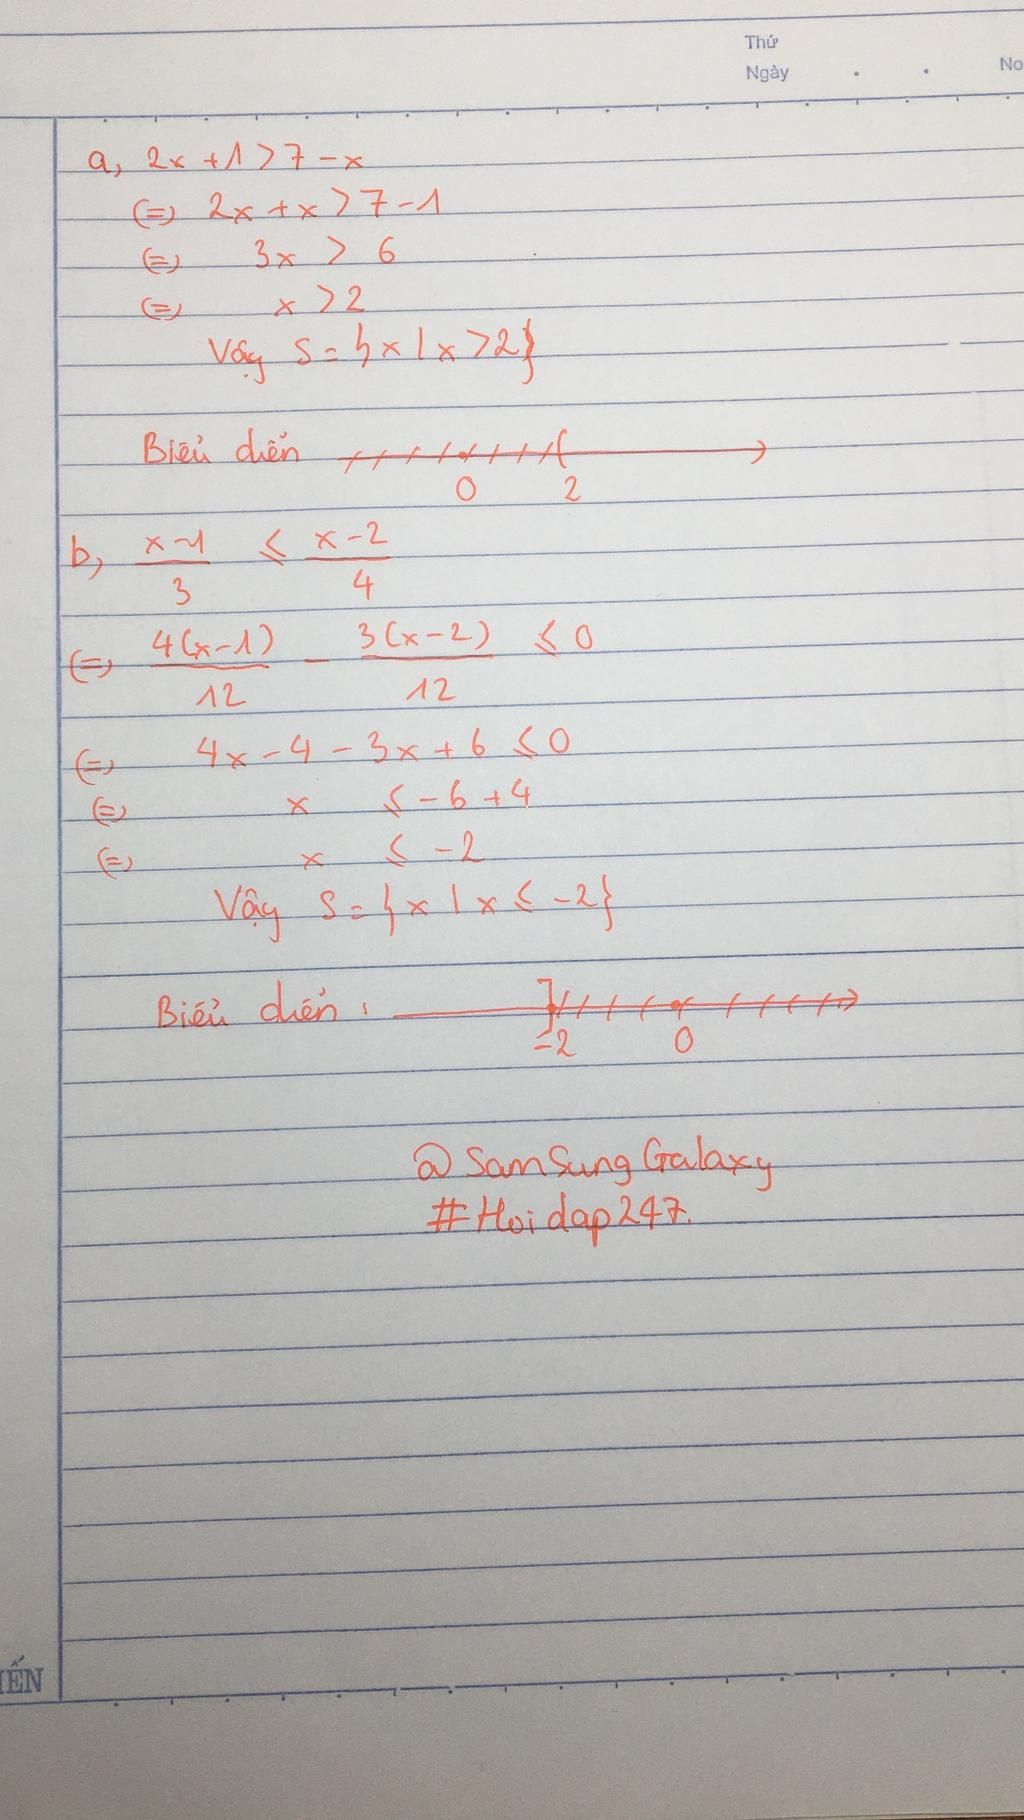 Thứ
Ngày . . No
a, 2x + 1 > 7 - x
(=) 2x + x > 7 - 1
(=) 3x > 6
(=) x > 2
Vậy S = {x | x > 2}
Biểu diễn
0 2
b, x - 1 / 3 ≤ x - 2 / 4
(=) 4(x - 1) / 12 - 3(x - 2) / 12 ≤ 0
(=) 4x - 4 - 3x + 6 ≤ 0
(=) x ≤ - 6 + 4
(=) x ≤ - 2
Vậy S = {x | x ≤ -2}
Biểu diễn :
-2 0
@SamSungGalaxy
#Hoidap247.
IẾN